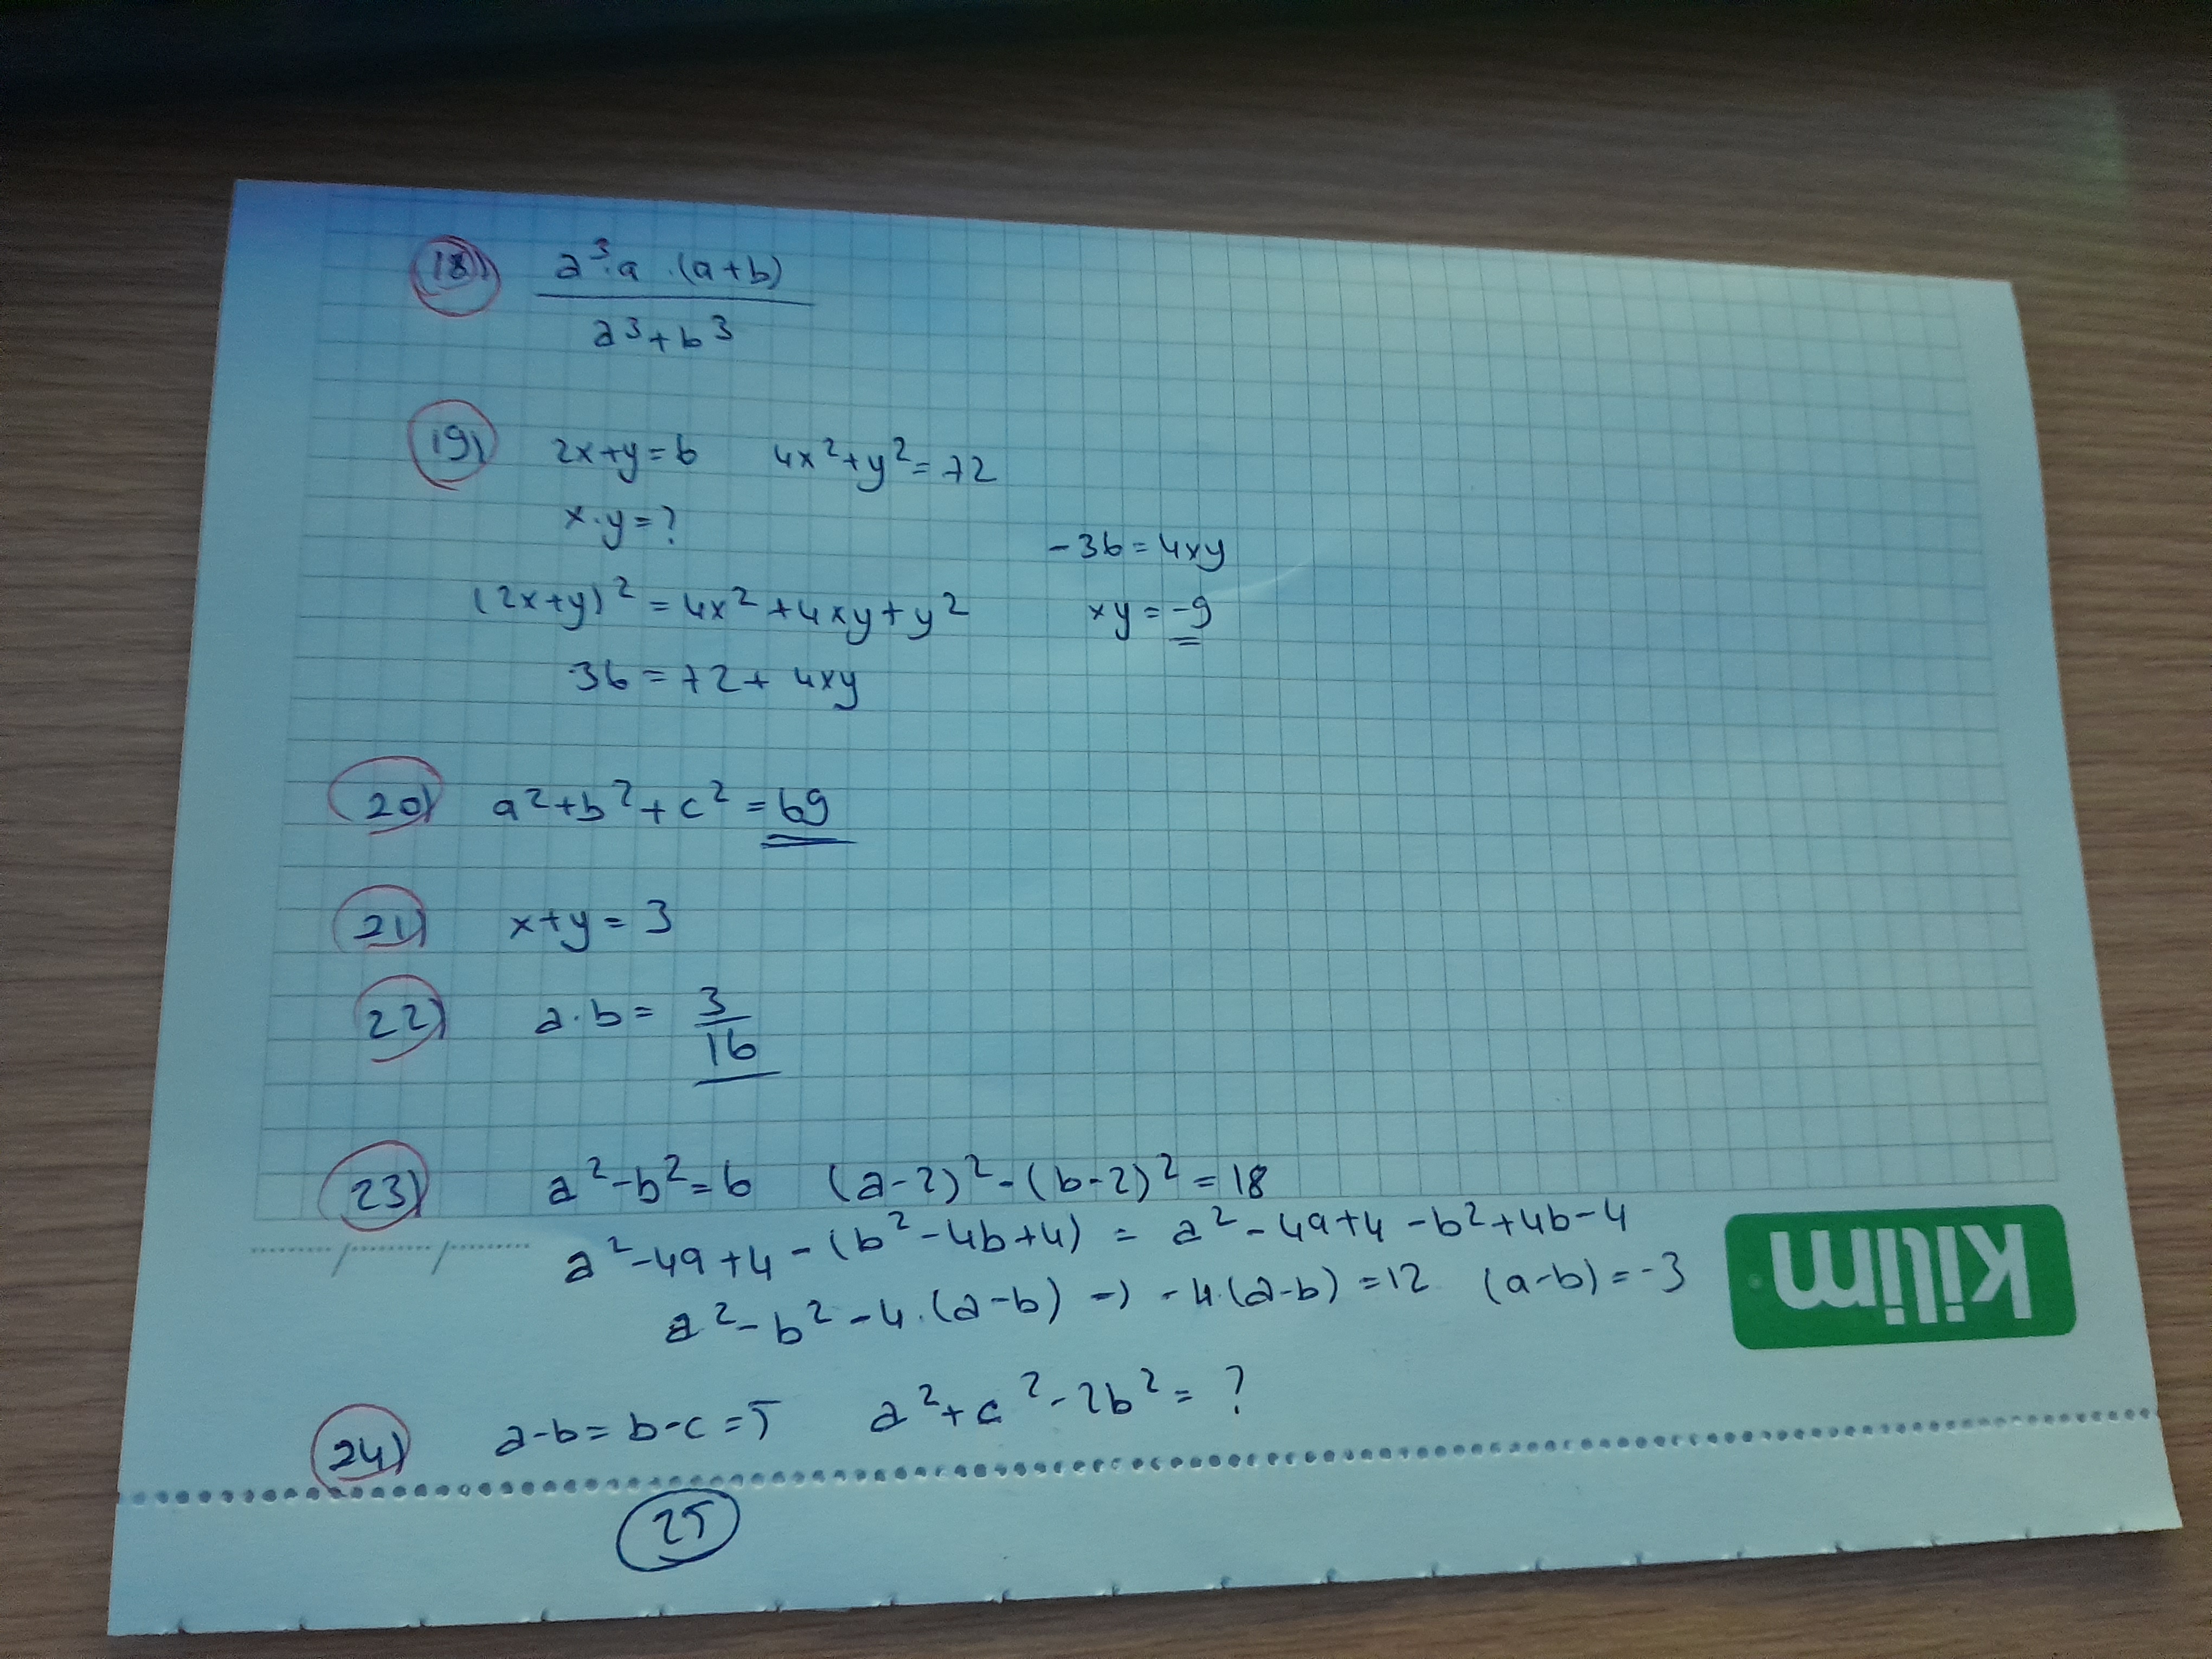 18) a³·a·(a+b)
a³+b³
19) 2x+y=6 4x²+y²=72
x·y=?
-36=4xy
(2x+y)²=4x²+4xy+y² xy=-9
36=72+4xy
20) a²+b²+c²=69
21) x+y=3
22) a·b=3/16
23) a²-b²=6 (a-2)²-(b-2)²=18
a²-4a+4-(b²-4b+4)=a²-4a+4-b²+4b-4
a²-b²-4·(a-b) → -4·(a-b)=12 (a-b)=-3
kilim
24) a-b=b-c=5 a²+c²-2b²=?
25